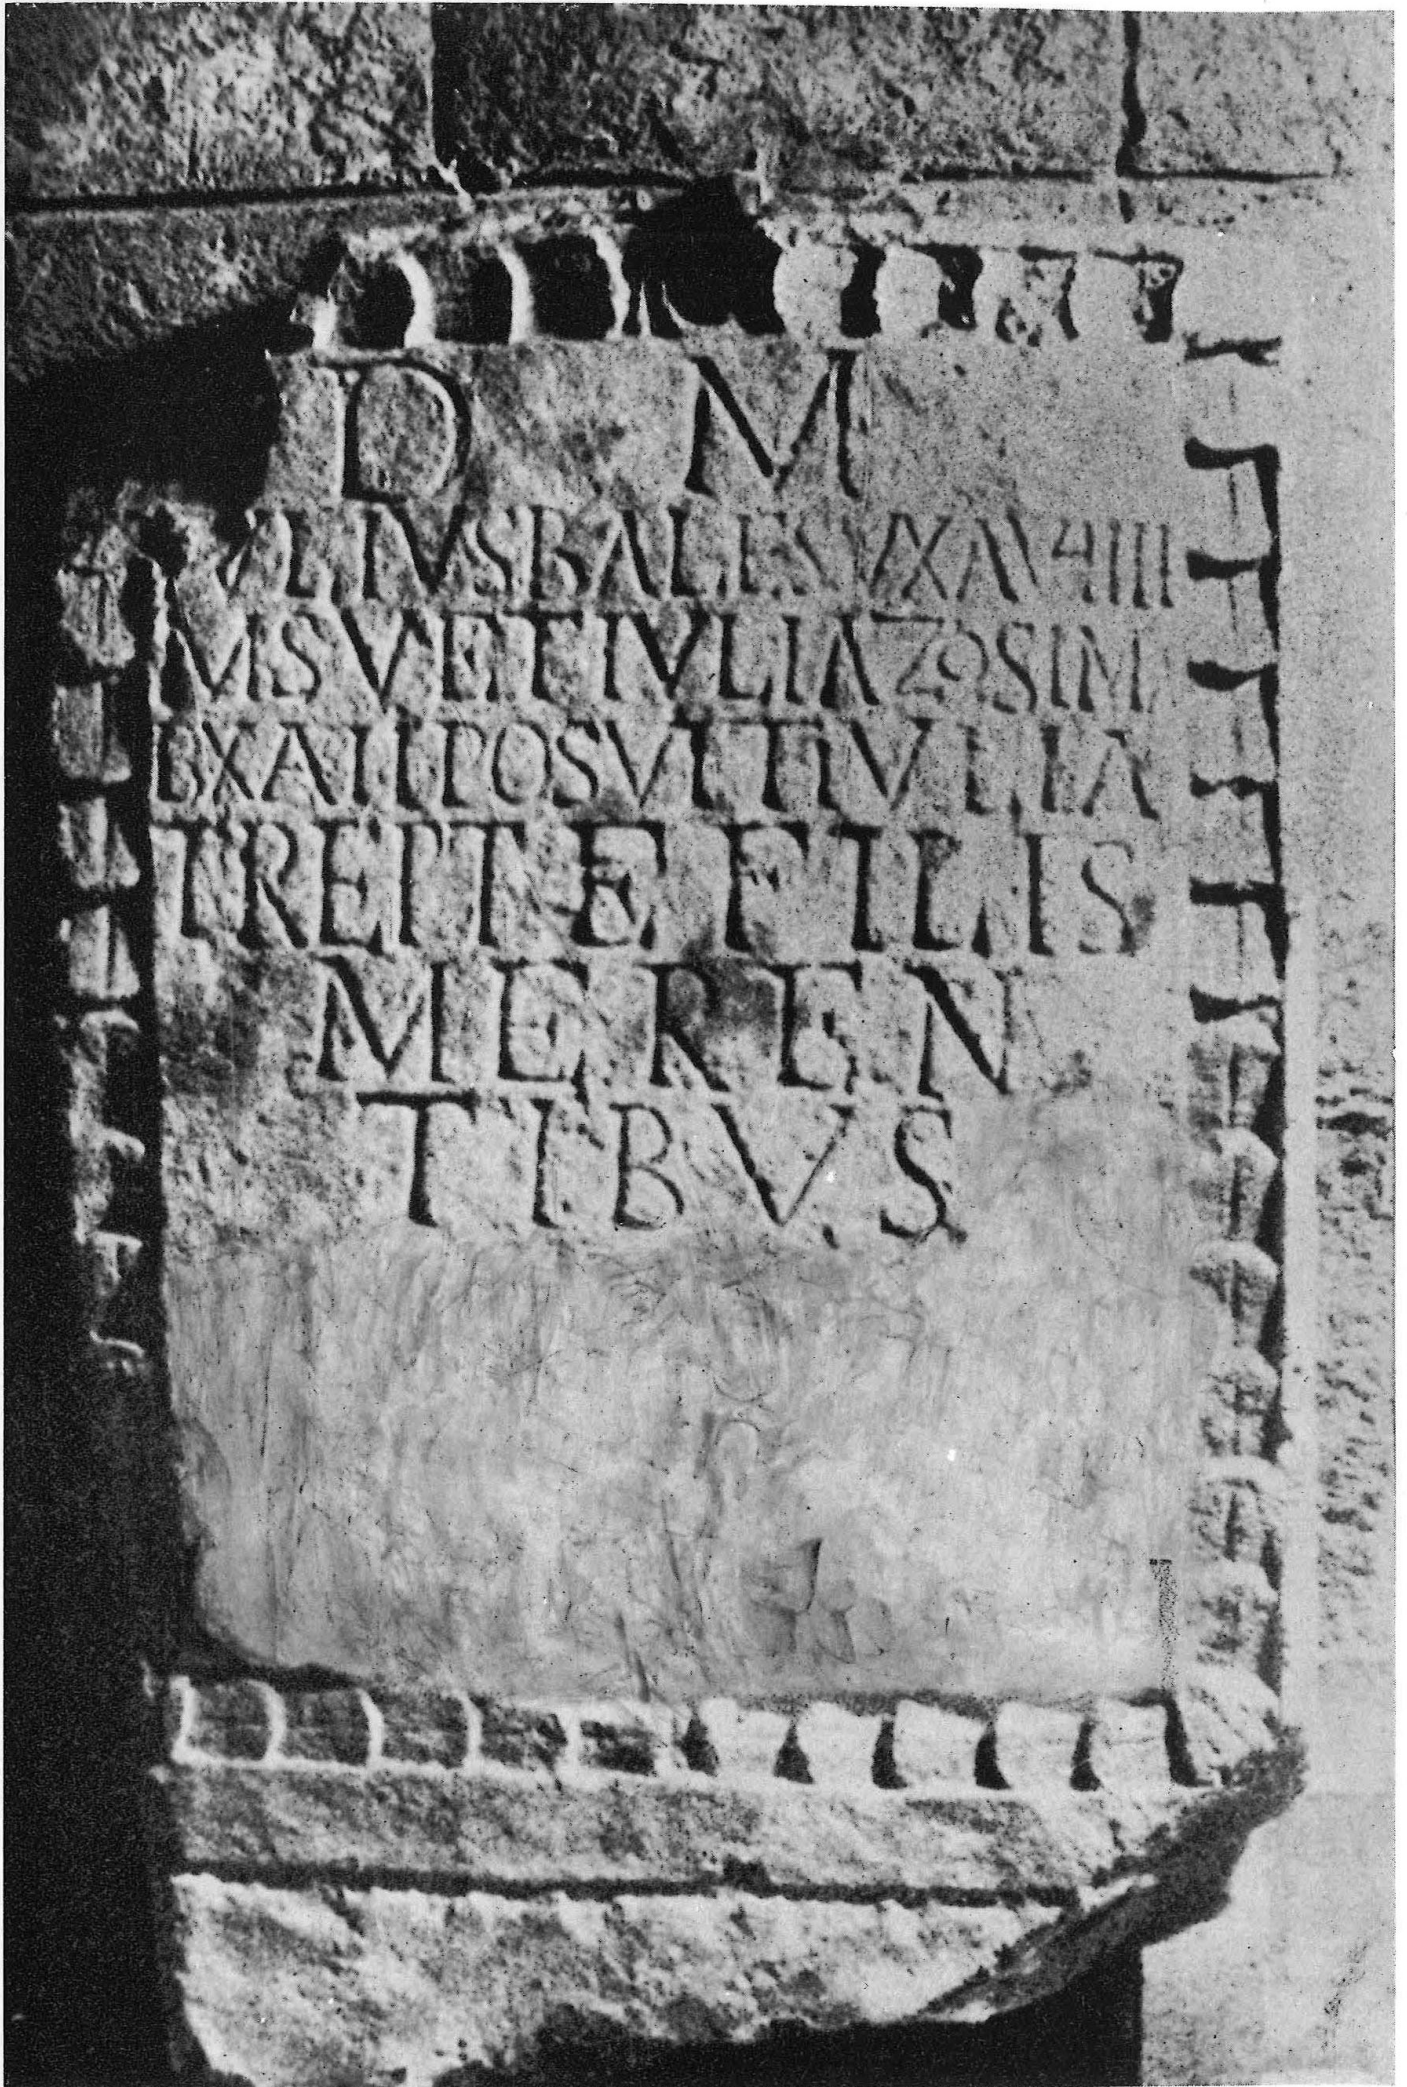 D M
VLIVS BALES VIX AN VIIII
MS V ET IVLIA ZOSIM
VIX A II POSVIT IVLIA
TREPTE FILIS
MEREN
TIBVS